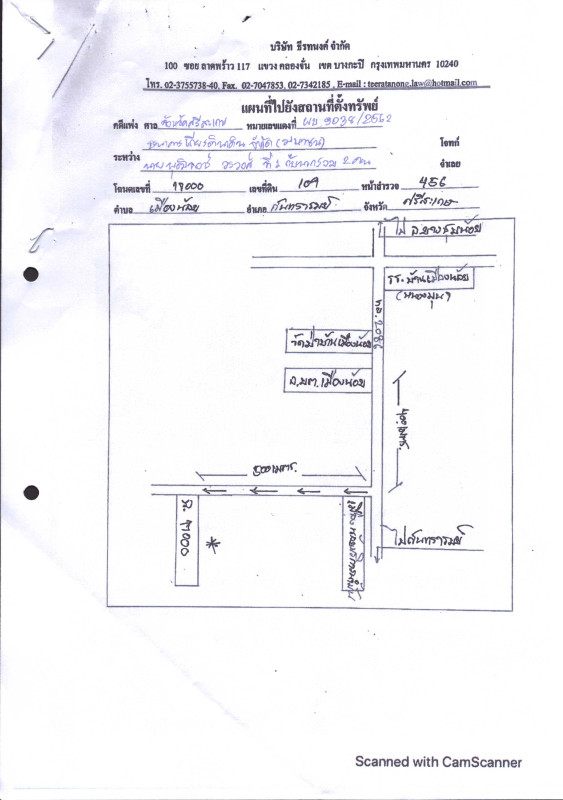 บริษัท ธีรทนงค์ จำกัด
100 ซอย ลาดพร้าว 117 แขวง คลองจั่น เขต บางกะปิ กรุงเทพมหานคร 10240
โทร. 02-3755738-40, Fax. 02-7047853, 02-7342185 , E-mail : teeratanong.law@hotmail.com
แผนที่ไปยังสถานที่ตั้งทรัพย์
คดีแพ่ง ศาล จังหวัดศรีสะเกษ หมายเลขแดงที่ ผบ 9038/2562
ธนาคารเกียรตินาคิน จำกัด (มหาชน) โจทก์
ระหว่าง
ที่ 1 กับพวกรวม 2 คน จำเลย
โฉนดเลขที่ 17000 เลขที่ดิน 109 หน้าสำรวจ 456
ตำบล เมืองน้อย อำเภอ กันทรารมย์ จังหวัด ศรีสะเกษ
ไป อ.ยางชุมน้อย
รร.บ้านเมืองน้อย
ทล.2086
วัดป่าบ้านเมืองน้อย
อบต.เมืองน้อย
เมตร.
500 เมตร.
ไปกันทรารมย์
Scanned with CamScanner